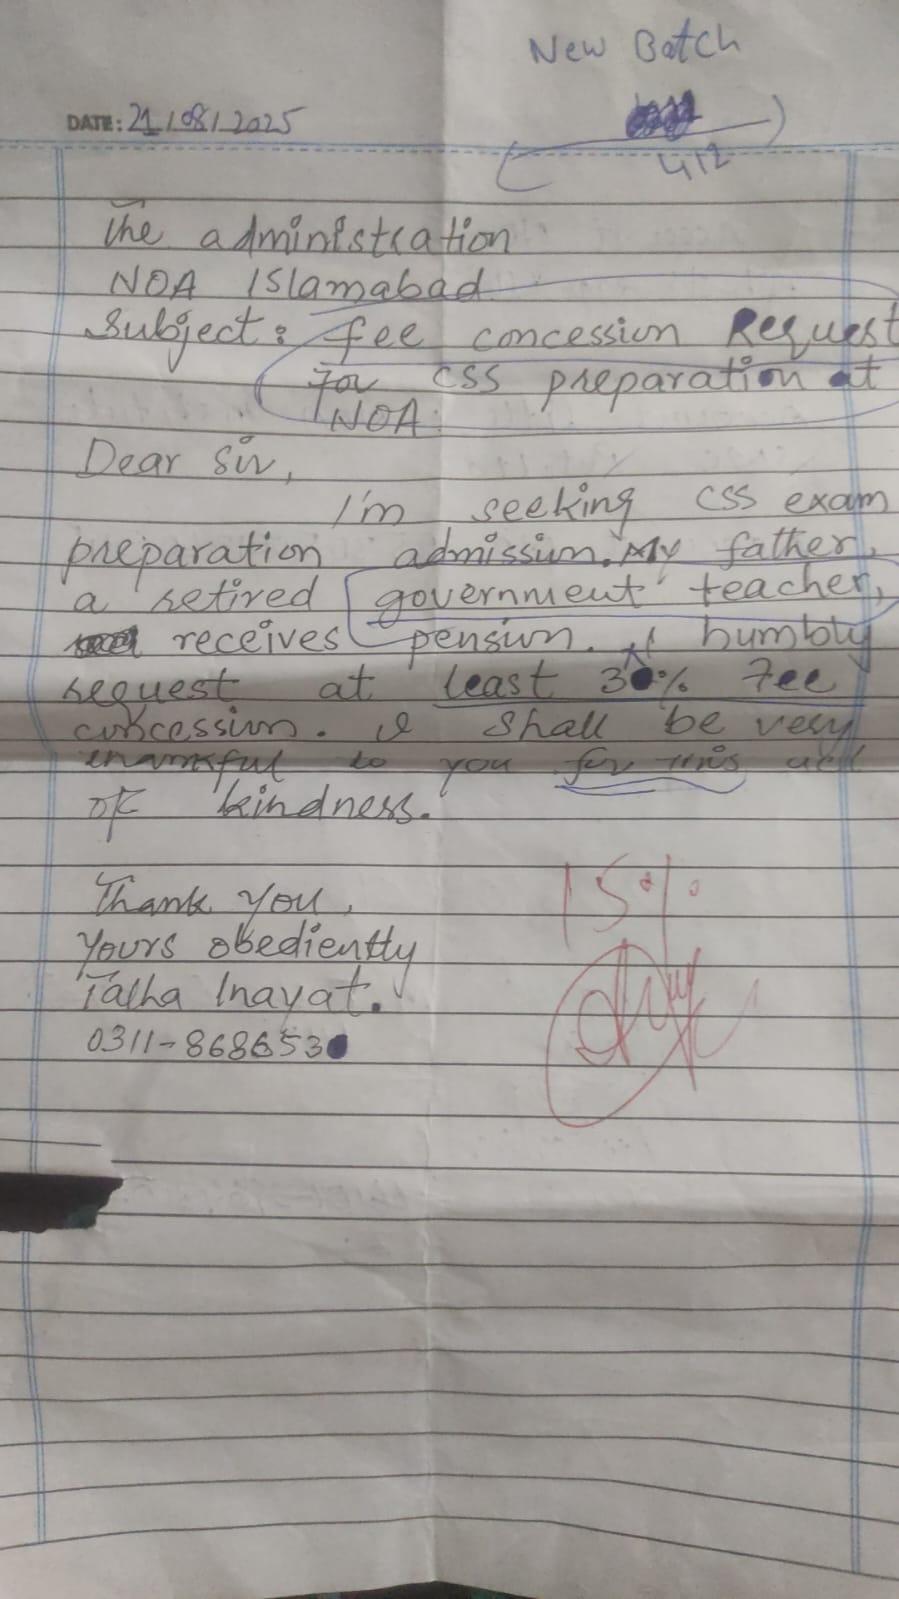 New Batch
DATE: 21/08/2025
412
The administration
NOA Islamabad
Subject: fee concession Request
For CSS preparation at
NOA.
Dear Sir,
I'm seeking CSS exam
preparation admission. My father,
a retired government teacher,
receives pension. I humbly
request at least 30% Fee
concession. I shall be very
thankful to you for this act
of kindness.
Thank you,
15%
Yours obediently
Talha Inayat.
0311-8686530